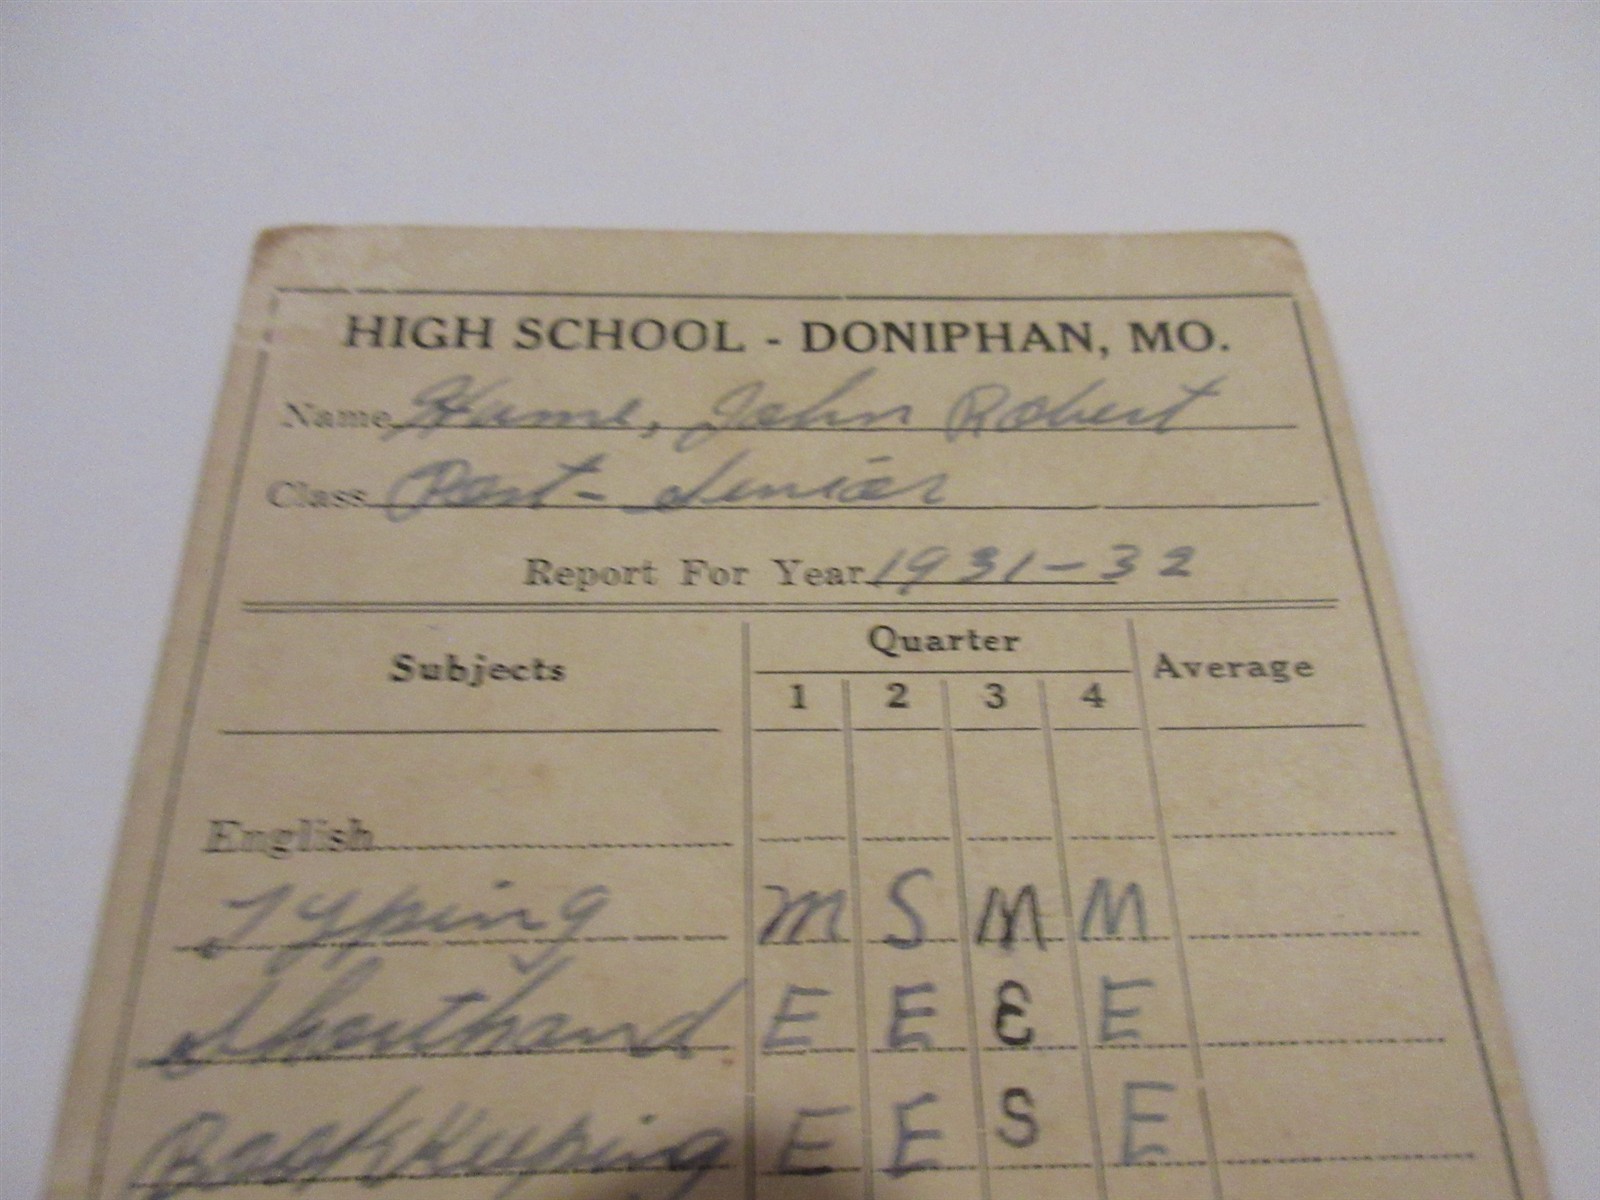 HIGH SCHOOL - DONIPHAN, MO.
Name Hume, John Robert
Class Post-Senior
Report For Year 1931-32
Subjects Quarter Average
1 2 3 4
English
Typing M S M M
Shorthand E E E E
Bookkeeping E E S E